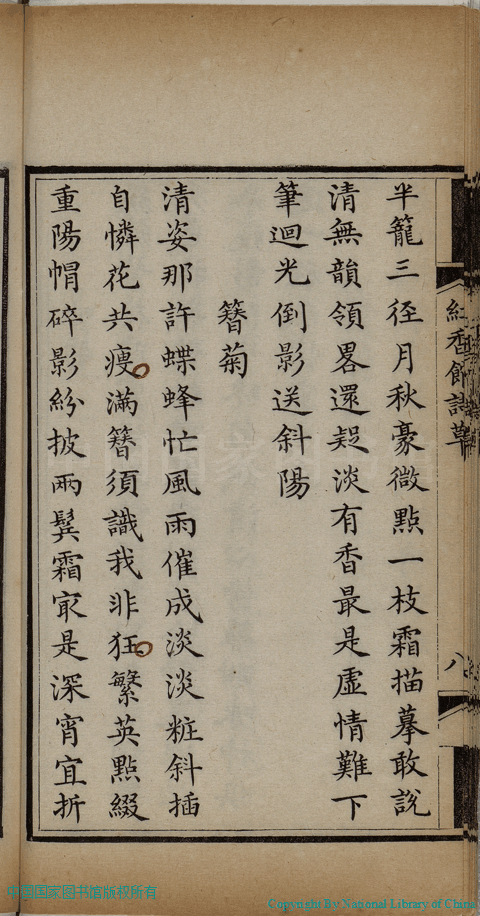 半籠三径月秋豪微點一枝霜描摹敢說
清無韻領畧還疑淡有香最是虛情難下
筆迴光倒影送斜陽
簪菊
清姿那許蝶蜂忙風雨催成淡淡粧斜插
自憐花共瘦滿簪須識我非狂繁英點綴
重陽帽碎影紛披兩鬢霜㝡是深宵宜折
紅香館詩草
八
中国国家图书馆版权所有
Copyright By National Library of China